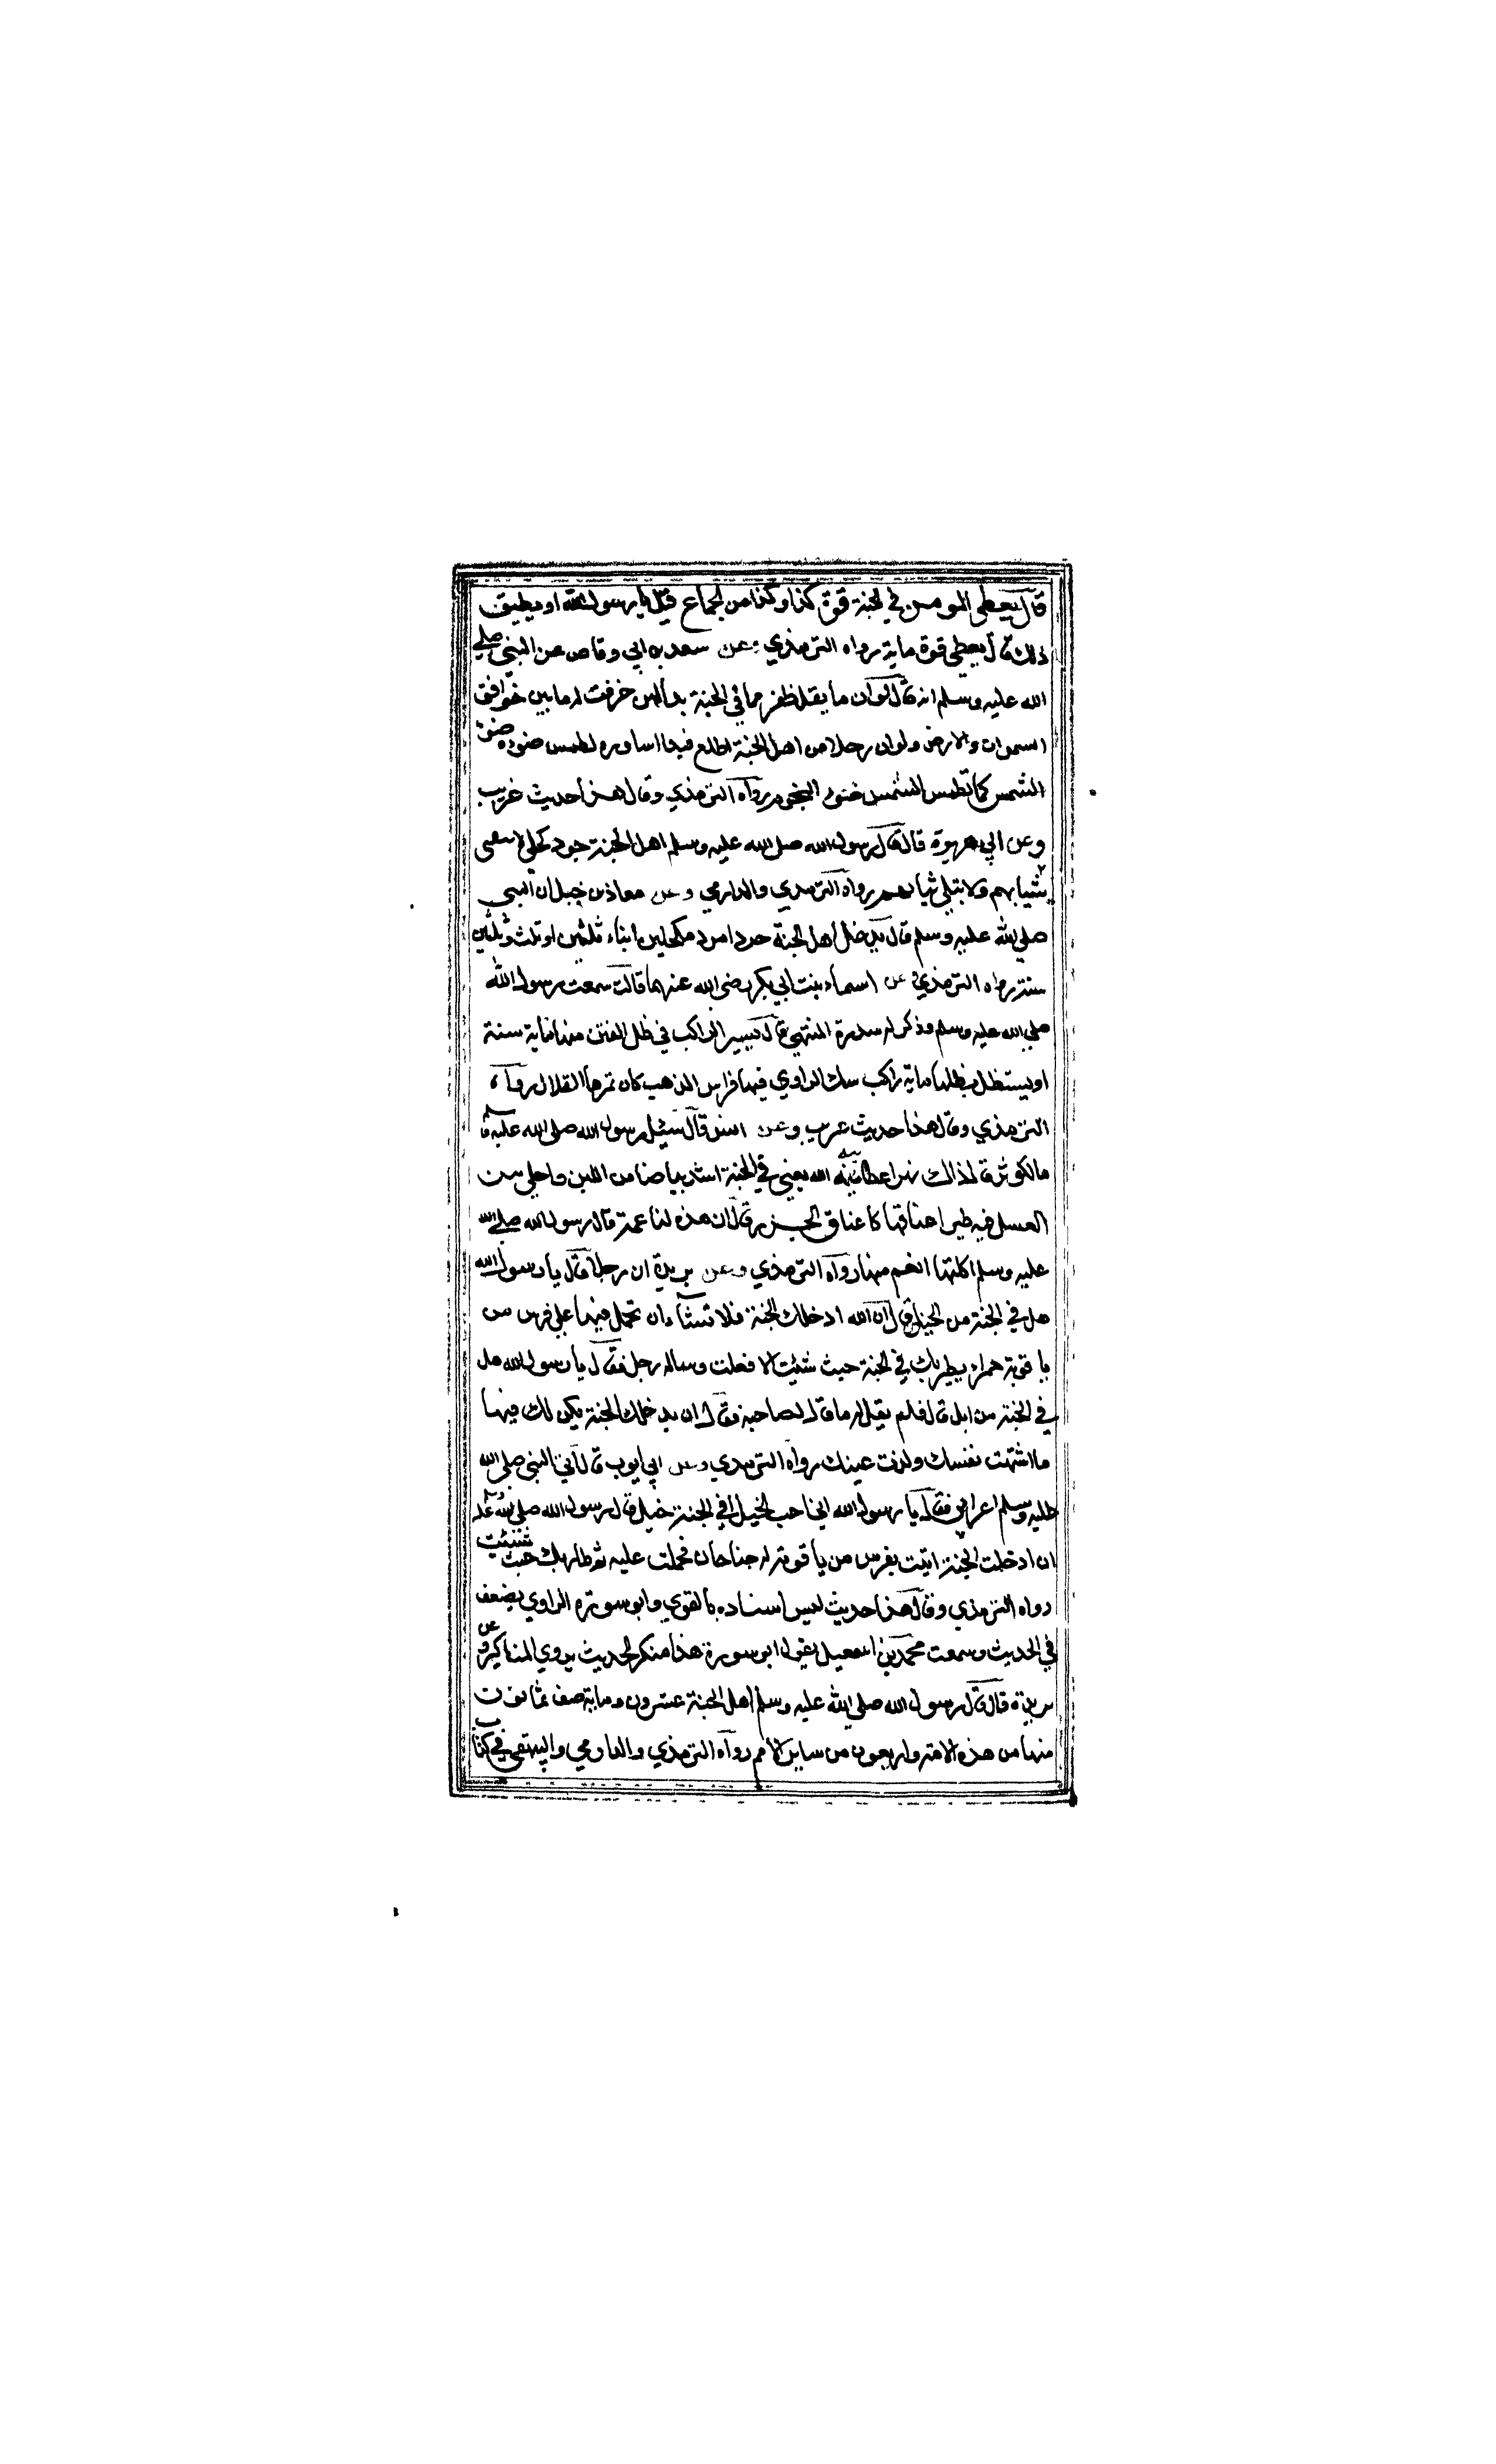 قال يعطى المومن في الجنة قوة كذا وكذا من الجماع قيل يا رسول الله او يطيق
ذلك قال يعطى قوة ماية رواه الترمذي وعن سعد بن ابي وقاص عن النبي صلي
الله عليه وسلم انه قال لوان ما يقل ظفر مما في الجنة بدا لهن خرفت له ما بين خوافق
السموات والارض ولوان رجلا من اهل الجنة اطلع فبدا اساوره لطمس ضوءه ضوء
الشمس كما تطمس الشمس ضوء النجوم رواه الترمذي وقال هذا حديث غريب
وعن ابي هريرة قال قال رسول الله صلي الله عليه وسلم اهل الجنة جرد كحلى لا يفنى
شبابهم ولا يبلى ثيابهم رواه الترمذي والدارمي وعن معاذ بن جبل ان النبي
صلي الله عليه وسلم قال يدخل اهل الجنة جردا مرد مكحلين ابناء ثلثين او ثلث وثلثين
سنة رواه الترمذي عن اسماء بنت ابي بكر رضي الله عنهما قالت سمعت رسول الله
صلي الله عليه وسلم وذكر له سدرة المنتهى قال يسير الراكب في ظل الفنن منها ماية سنة
او يستظل بظلها ماية راكب شك الراوي فيها فراش الذهب كان ثمرها القلال رواه
الترمذي وقال هذا حديث غريب وعن انس قال سئل رسول الله صلي الله عليه وسلم
ما الكوثر قال ذاك نهر اعطانيه الله يعني في الجنة اشد بياضا من اللبن واحلى من
العسل فيه طير اعناقها كاعناق الجزر قال ان هذه لناعمة قال رسول الله صلي الله
عليه وسلم اكلتها انعم منها رواه الترمذي وعن بريدة ان رجلا قال يا رسول الله
هل في الجنة من الخيل قال ان الله ادخلك الجنة فلا تشاء ان تحمل فيها على فرس من
ياقوتة حمراء يطير بك في الجنة حيث شئت الا فعلت وساله رجل فقال يا رسول الله هل
في الجنة من ابل قال فلم يقل له ما قال لصاحبه فقال ان يدخلك الجنة يكن لك فيها
ما اشتهت نفسك ولذت عينك رواه الترمذي وعن ابي ايوب قال اتي النبي صلي الله
عليه وسلم اعرابي فقال يا رسول الله اني احب الخيل افي الجنة خيل قال رسول الله صلي الله عليه وسلم
ان ادخلت الجنة اتيت بفرس من ياقوتة له جناحان فحملت عليه ثم طار بك حيث شئت
رواه الترمذي وقال هذا حديث ليس اسناده بالقوي وابو سورة الراوي يضعف
في الحديث وسمعت محمد بن اسمعيل يقول ابو سورة هذا منكر الحديث يروي المناكير وعن
بريدة قال قال رسول الله صلي الله عليه وسلم اهل الجنة عشرون وماية صف ثمانون
منها من هذه الامة واربعون من ساير الامم رواه الترمذي والدارمي والبيهقي في كتاب